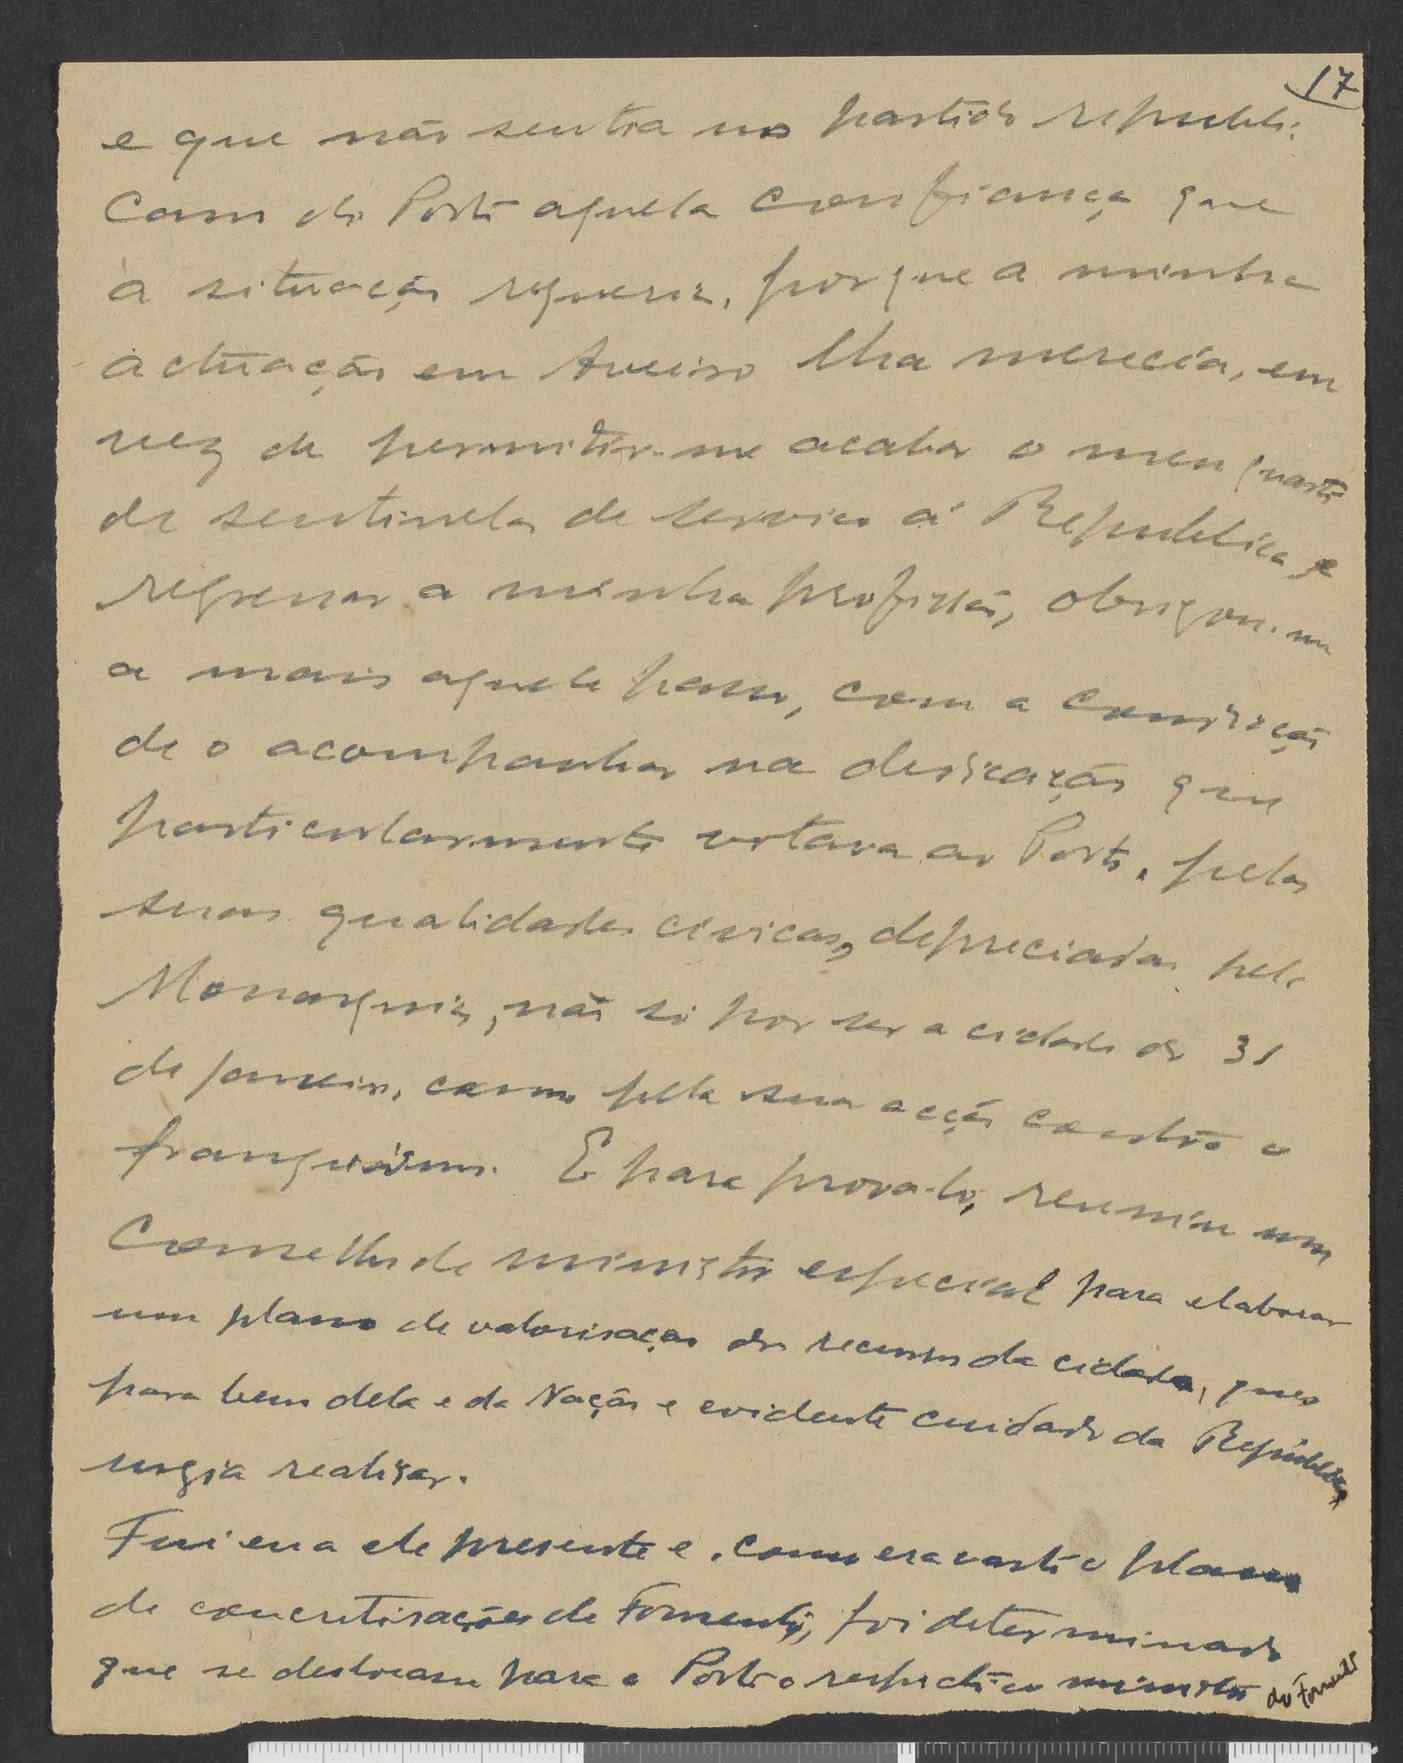 17
e que não sentia no partido republi-
cano do Porto aquela confiança que
a situação requeria, porque a minha
actuação em Aveiro lha merecia, em
vez de permitir-me acabar o meu quarto
de sentinela de serviço á Republica e
regressar a minha profissão, obrigou-me
a mais aquele passo, com a condição
de o acompanhar na dedicação que
particularmente votava ao Porto, pelas
suas qualidades civicas, depreciadas pela
Monarquia, não só por ser a cidade do 31
de Janeiro, como pela sua acção contra o
franquismo. E para prova-lo, reuniu um
Conselho de ministros especial para elaborar
um plano de valorisação dos recursos da cidade, que
para bem dela e da Nação e evidente cuidado da República
urgia realizar.
Fui eu a ele presente e, como era vasto o plano
de concretisações de Fomento, foi determinado
que se deslocasse para o Porto o respectivo ministro do Fomento